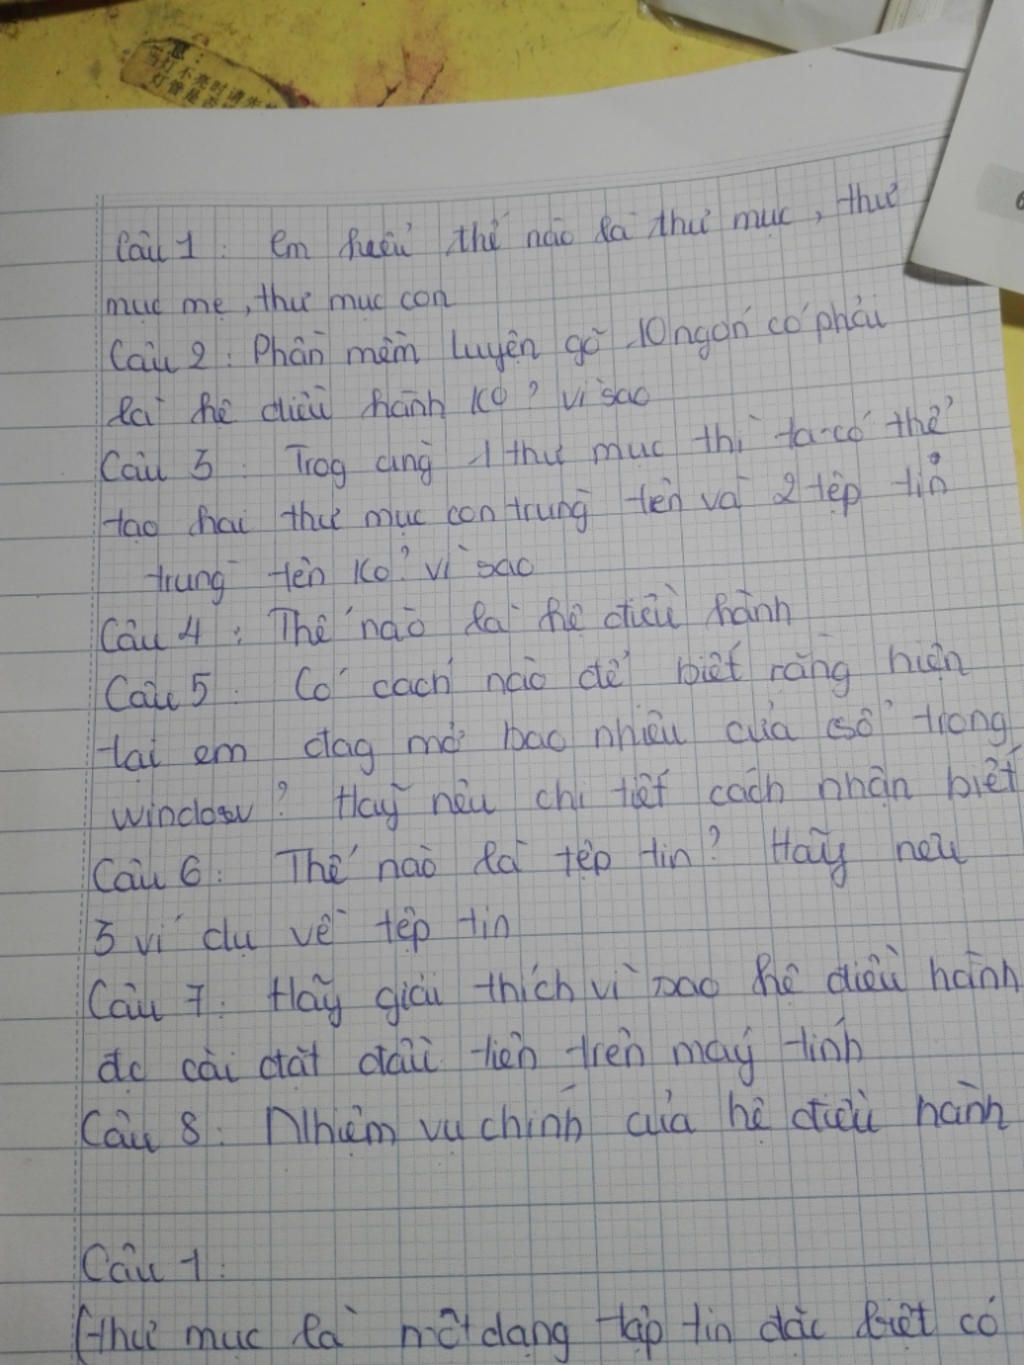 当灯不亮时请先
灯管是否
Câu 1: Em hiểu thế nào là thư mục, thư
mục mẹ, thư mục con
Câu 2: Phần mềm luyện gõ 10 ngón có phải
là hệ điều hành ko? vì sao
Câu 3: Trog cùng 1 thư mục thì ta có thể
tạo hai thư mục con trùng tên và 2 tệp tin
trùng tên ko? vì sao
Câu 4: Thế nào là hệ điều hành
Câu 5: Có cách nào để biết rằng hiện
tại em đag mở bao nhiêu cửa sổ trong
window? Hãy nêu chi tiết cách nhận biết
Câu 6: Thế nào là tệp tin? Hãy nêu
3 ví dụ về tệp tin
Câu 7: Hãy giải thích vì sao hệ điều hành
đc cài đặt đầu tiên trên máy tính
Câu 8: Nhiệm vụ chính của hệ điều hành
Câu 1:
(thư mục là một dạng tập tin đặc biệt có